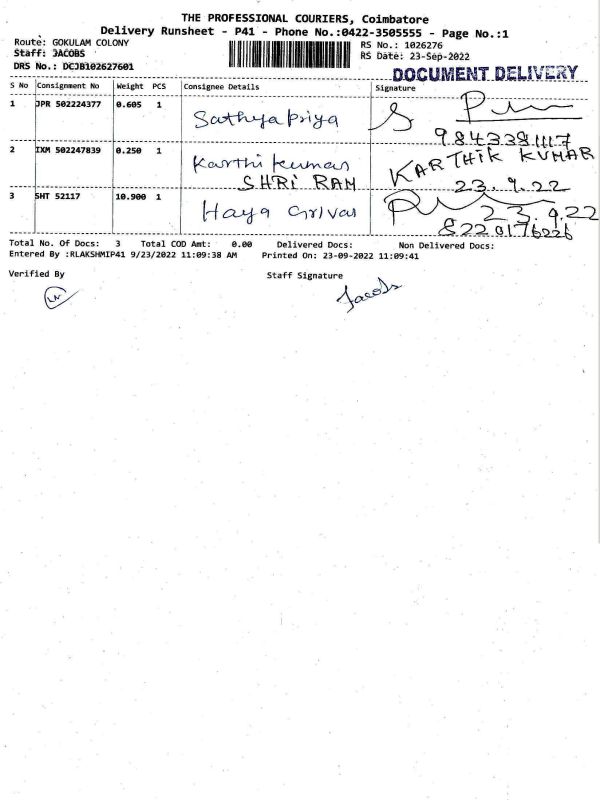 THE PROFESSIONAL COURIERS, Coimbatore
Delivery Runsheet - P41 - Phone No.:0422-3505555 - Page No.:1
Route: GOKULAM COLONY
RS No.: 1026276
Staff: JACOBS
RS Date: 23-Sep-2022
DRS No.: DCJB102627601
DOCUMENT DELIVERY
S No Consignment No Weight PCS Consignee Details Signature
1 JPR 502224377 0.605 1 Sathyapriya
9843381117
2 IXM 502247839 0.250 1 Karthi kumar KARTHIK KUMAR
SHRI RAM 23.9.22
3 SHT 52117 10.900 1 Haya Grivas 23.9.22
8220176226
Total No. Of Docs: 3 Total COD Amt: 0.00 Delivered Docs: Non Delivered Docs:
Entered By :RLAKSHMIP41 9/23/2022 11:09:38 AM Printed On: 23-09-2022 11:09:41
Verified By Staff Signature
Jacobs